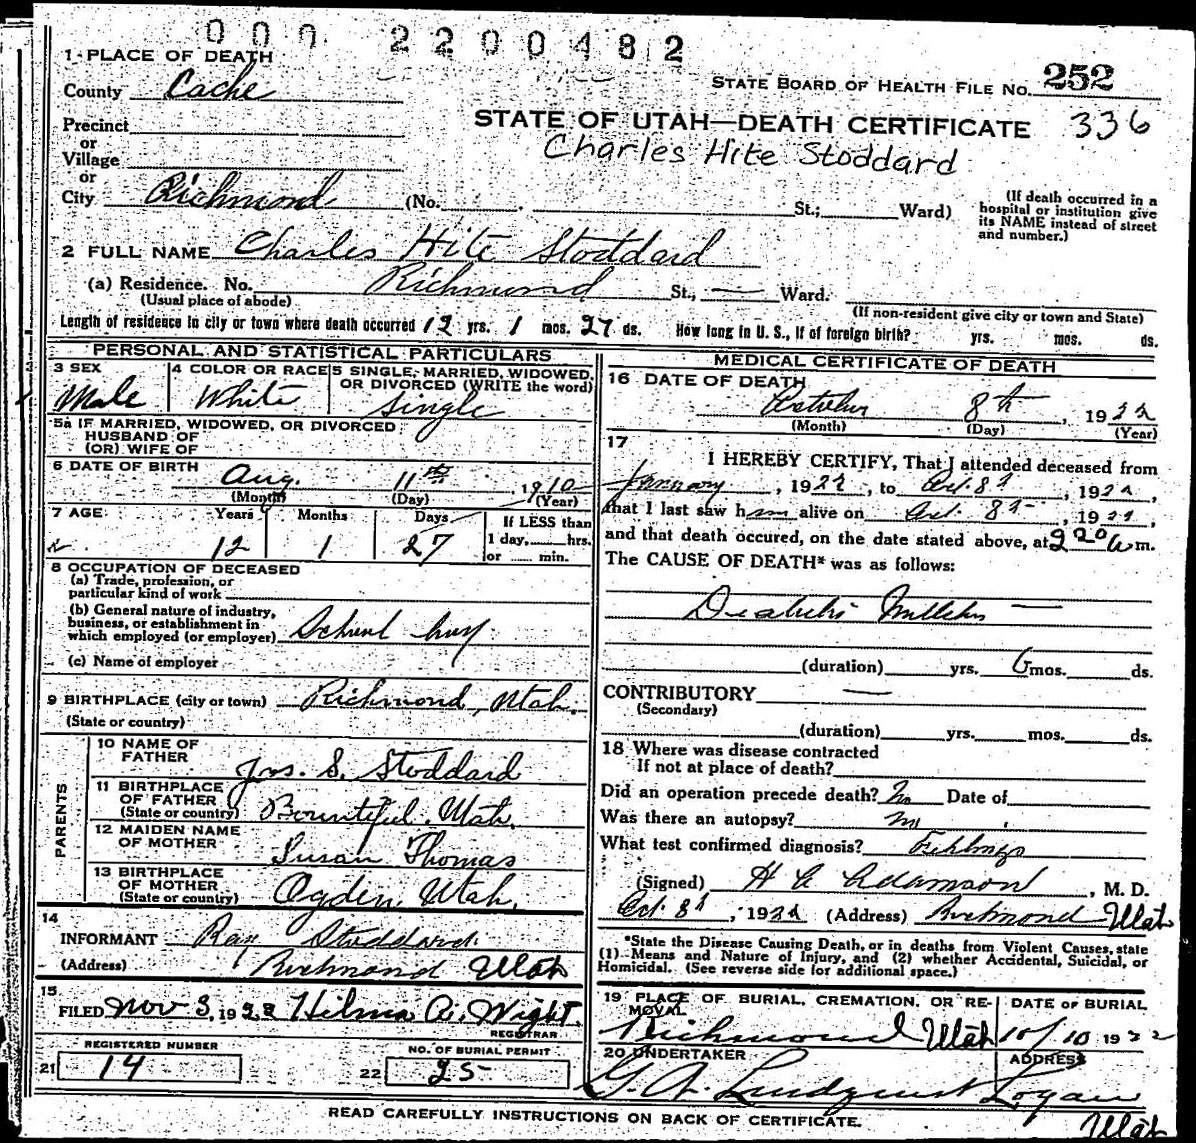 000 2200482
1 PLACE OF DEATH
County Cache
STATE BOARD OF HEALTH FILE No. 252
Precinct
STATE OF UTAH—DEATH CERTIFICATE 336
or
Charles Hite Stoddard
Village
or
City Richmond (No. St.; Ward)
(If death occurred in a hospital or institution give its NAME instead of street and number.)
2 FULL NAME Charles Hite Stoddard
(a) Residence. No. Richmond St., — Ward.
(Usual place of abode)
(If non-resident give city or town and State)
Length of residence in city or town where death occurred 12 yrs. 1 mos. 27 ds. How long in U. S., if of foreign birth? yrs. mos. ds.
PERSONAL AND STATISTICAL PARTICULARS
3 SEX
Male
4 COLOR OR RACE
White
5 SINGLE, MARRIED, WIDOWED, OR DIVORCED (WRITE the word)
Single
5a IF MARRIED, WIDOWED, OR DIVORCED
HUSBAND OF
(OR) WIFE OF
6 DATE OF BIRTH
Aug. 11th, 1910
(Month) (Day) (Year)
7 AGE Years Months Days
12 1 27
If LESS than
1 day, hrs.
or min.
8 OCCUPATION OF DECEASED
(a) Trade, profession, or
particular kind of work
(b) General nature of industry,
business, or establishment in
which employed (or employer) School boy
(c) Name of employer
9 BIRTHPLACE (city or town) Richmond, Utah.
(State or country)
PARENTS
10 NAME OF
FATHER Jos. S. Stoddard
11 BIRTHPLACE
OF FATHER
(State or country) Bountiful, Utah.
12 MAIDEN NAME
OF MOTHER Susan Thomas
13 BIRTHPLACE
OF MOTHER
(State or country) Ogden, Utah.
14
INFORMANT Ray Stoddard.
(Address) Richmond Utah
15
FILED Nov 3, 1922 Hilma A. Wight.
REGISTRAR
REGISTERED NUMBER
21 14
NO. OF BURIAL PERMIT
22 25
MEDICAL CERTIFICATE OF DEATH
16 DATE OF DEATH
October 8th, 1922
(Month) (Day) (Year)
17
I HEREBY CERTIFY, That I attended deceased from
January, 1922, to Oct. 8th, 1922,
that I last saw him alive on Oct. 8th, 1922,
and that death occured, on the date stated above, at 2 20 a m.
The CAUSE OF DEATH* was as follows:
Diabetis Mellitus —
(duration) yrs. 6 mos. ds.
CONTRIBUTORY —
(Secondary)
(duration) yrs. mos. ds.
18 Where was disease contracted
If not at place of death?
Did an operation precede death? No Date of
Was there an autopsy? No
What test confirmed diagnosis? Fehlings
(Signed) H A Adamson, M. D.
Oct. 8th, 1922 (Address) Richmond Utah
*State the Disease Causing Death, or in deaths from Violent Causes, state
(1) Means and Nature of Injury, and (2) whether Accidental, Suicidal, or
Homicidal. (See reverse side for additional space.)
19 PLACE OF BURIAL, CREMATION, OR RE-
MOVAL
Richmond Utah
DATE OF BURIAL
10/10 1922
20 UNDERTAKER
G. A. Lundquist
ADDRESS
Logan
Utah
READ CAREFULLY INSTRUCTIONS ON BACK OF CERTIFICATE.